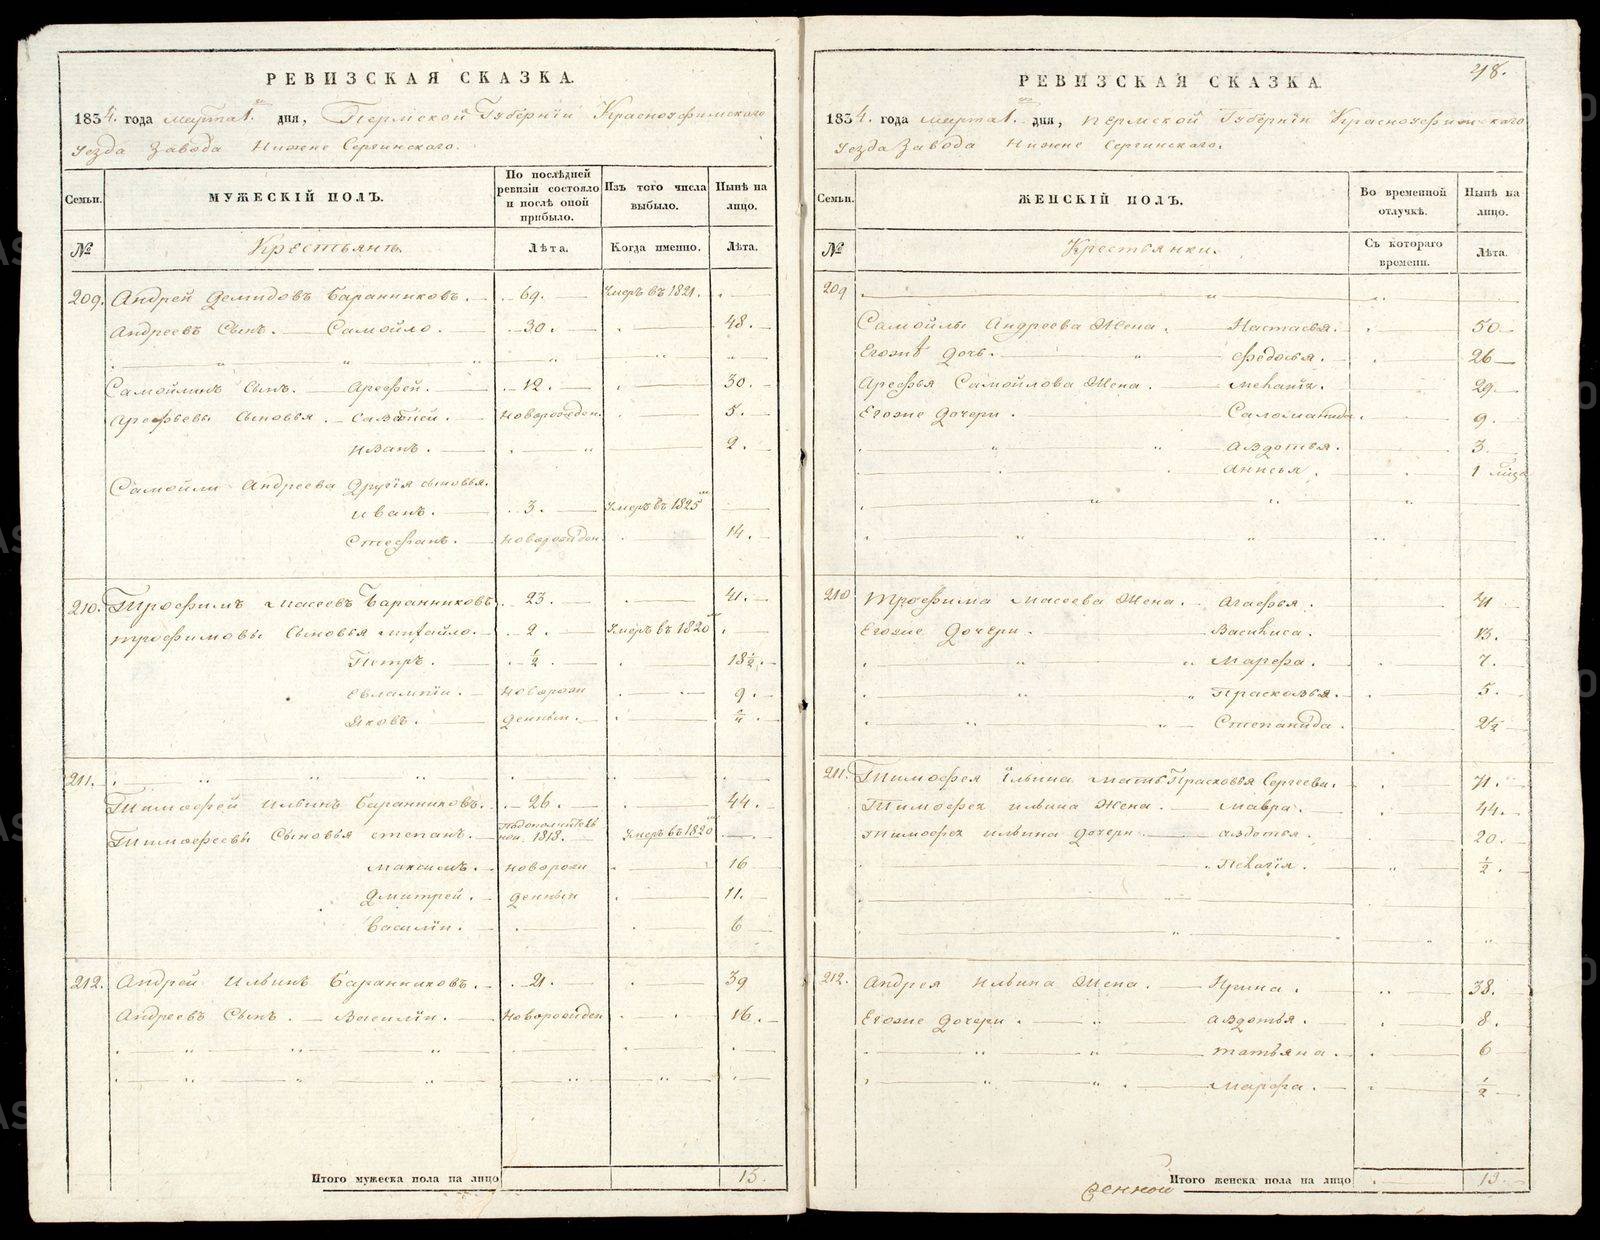 РЕВИЗСКАЯ СКАЗКА.
1834. года марта 1. дня, Пермской Губернiи Красноуфимскаго
уезда завода Нижне Сергинскаго.
Семьи. МУЖЕСКIЙ ПОЛЪ. По послѣдней ревизiи состояло и послѣ оной прибыло. Изъ того числа выбыло. Нынѣ на лицо.
№ Крестьянъ. Лѣта. Когда именно. Лѣта.
209. Андрей Демидовъ Баранниковъ. 69. Умеръ въ 1821.
Андреевъ Сынъ. Самойло. 30. 48.
Самойлинъ Сынъ. Арефей. 12. 30.
Арефьевы Сыновья. новорожден. 5.
иванъ. 2.
Самойли Андреева другiя сыновья.
иванъ. 3. Умеръ въ 1825
Стефанъ. новорожден. 14.
210. Трофимъ Масеевъ Баранниковъ 23. 41.
трофимовы Сыновья михайло. 2. Умеръ въ 1820
Петръ. ½ 18½.
евлампiи. новорож 9.
яковъ. денныи.
211.
Тимофей ильинъ Баранниковъ. 26. 44.
Тимофеевы Сыновья степанъ. 1818. Умеръ въ 1820
максимъ. новорож 16
Дмитрей. денныи 11.
Василiи. 6
212. Андрей Ильинъ Баранниковъ. 21. 39
Андреевъ Сынъ. Василiи. новорожден 16.
Итого мужеска пола на лицо 15.
48.
РЕВИЗСКАЯ СКАЗКА
1834. года марта 1. дня, Пермской Губернiи Красноуфимскаго
уезда завода Нижне Сергинскаго.
Семьи. ЖЕНСКIЙ ПОЛЪ. Во временной отлучкѣ. Нынѣ на лицо.
№ Крестьянки. Съ котораго времени. Лѣта.
209
Самойлы Андреева Жена. Настасья. 50.
Егожъ дочь. федосья. 26
Арефья Самойлова Жена. меланiя. 29.
Егоже дочери. Саломанида. 9.
авдотья. 3.
анисья. 1
210 трофима масеева Жена. агафья. 41
Егоже дочери. Василиса. 13.
марфа. 7.
Прасковья. 5.
Степанида. 2½
211. Тимофея ильина мать Прасковья Сергеева. 71.
Тимофея ильина Жена. мавра. 44.
тимофея ильина дочери. авдотья. 20.
Пелагiя. ½.
212. Андрея ильина Жена. Ирина. 38.
Егоже дочери. авдотья. 8.
татьяна. 6
марфа. ½
Итого женска пола на лицо